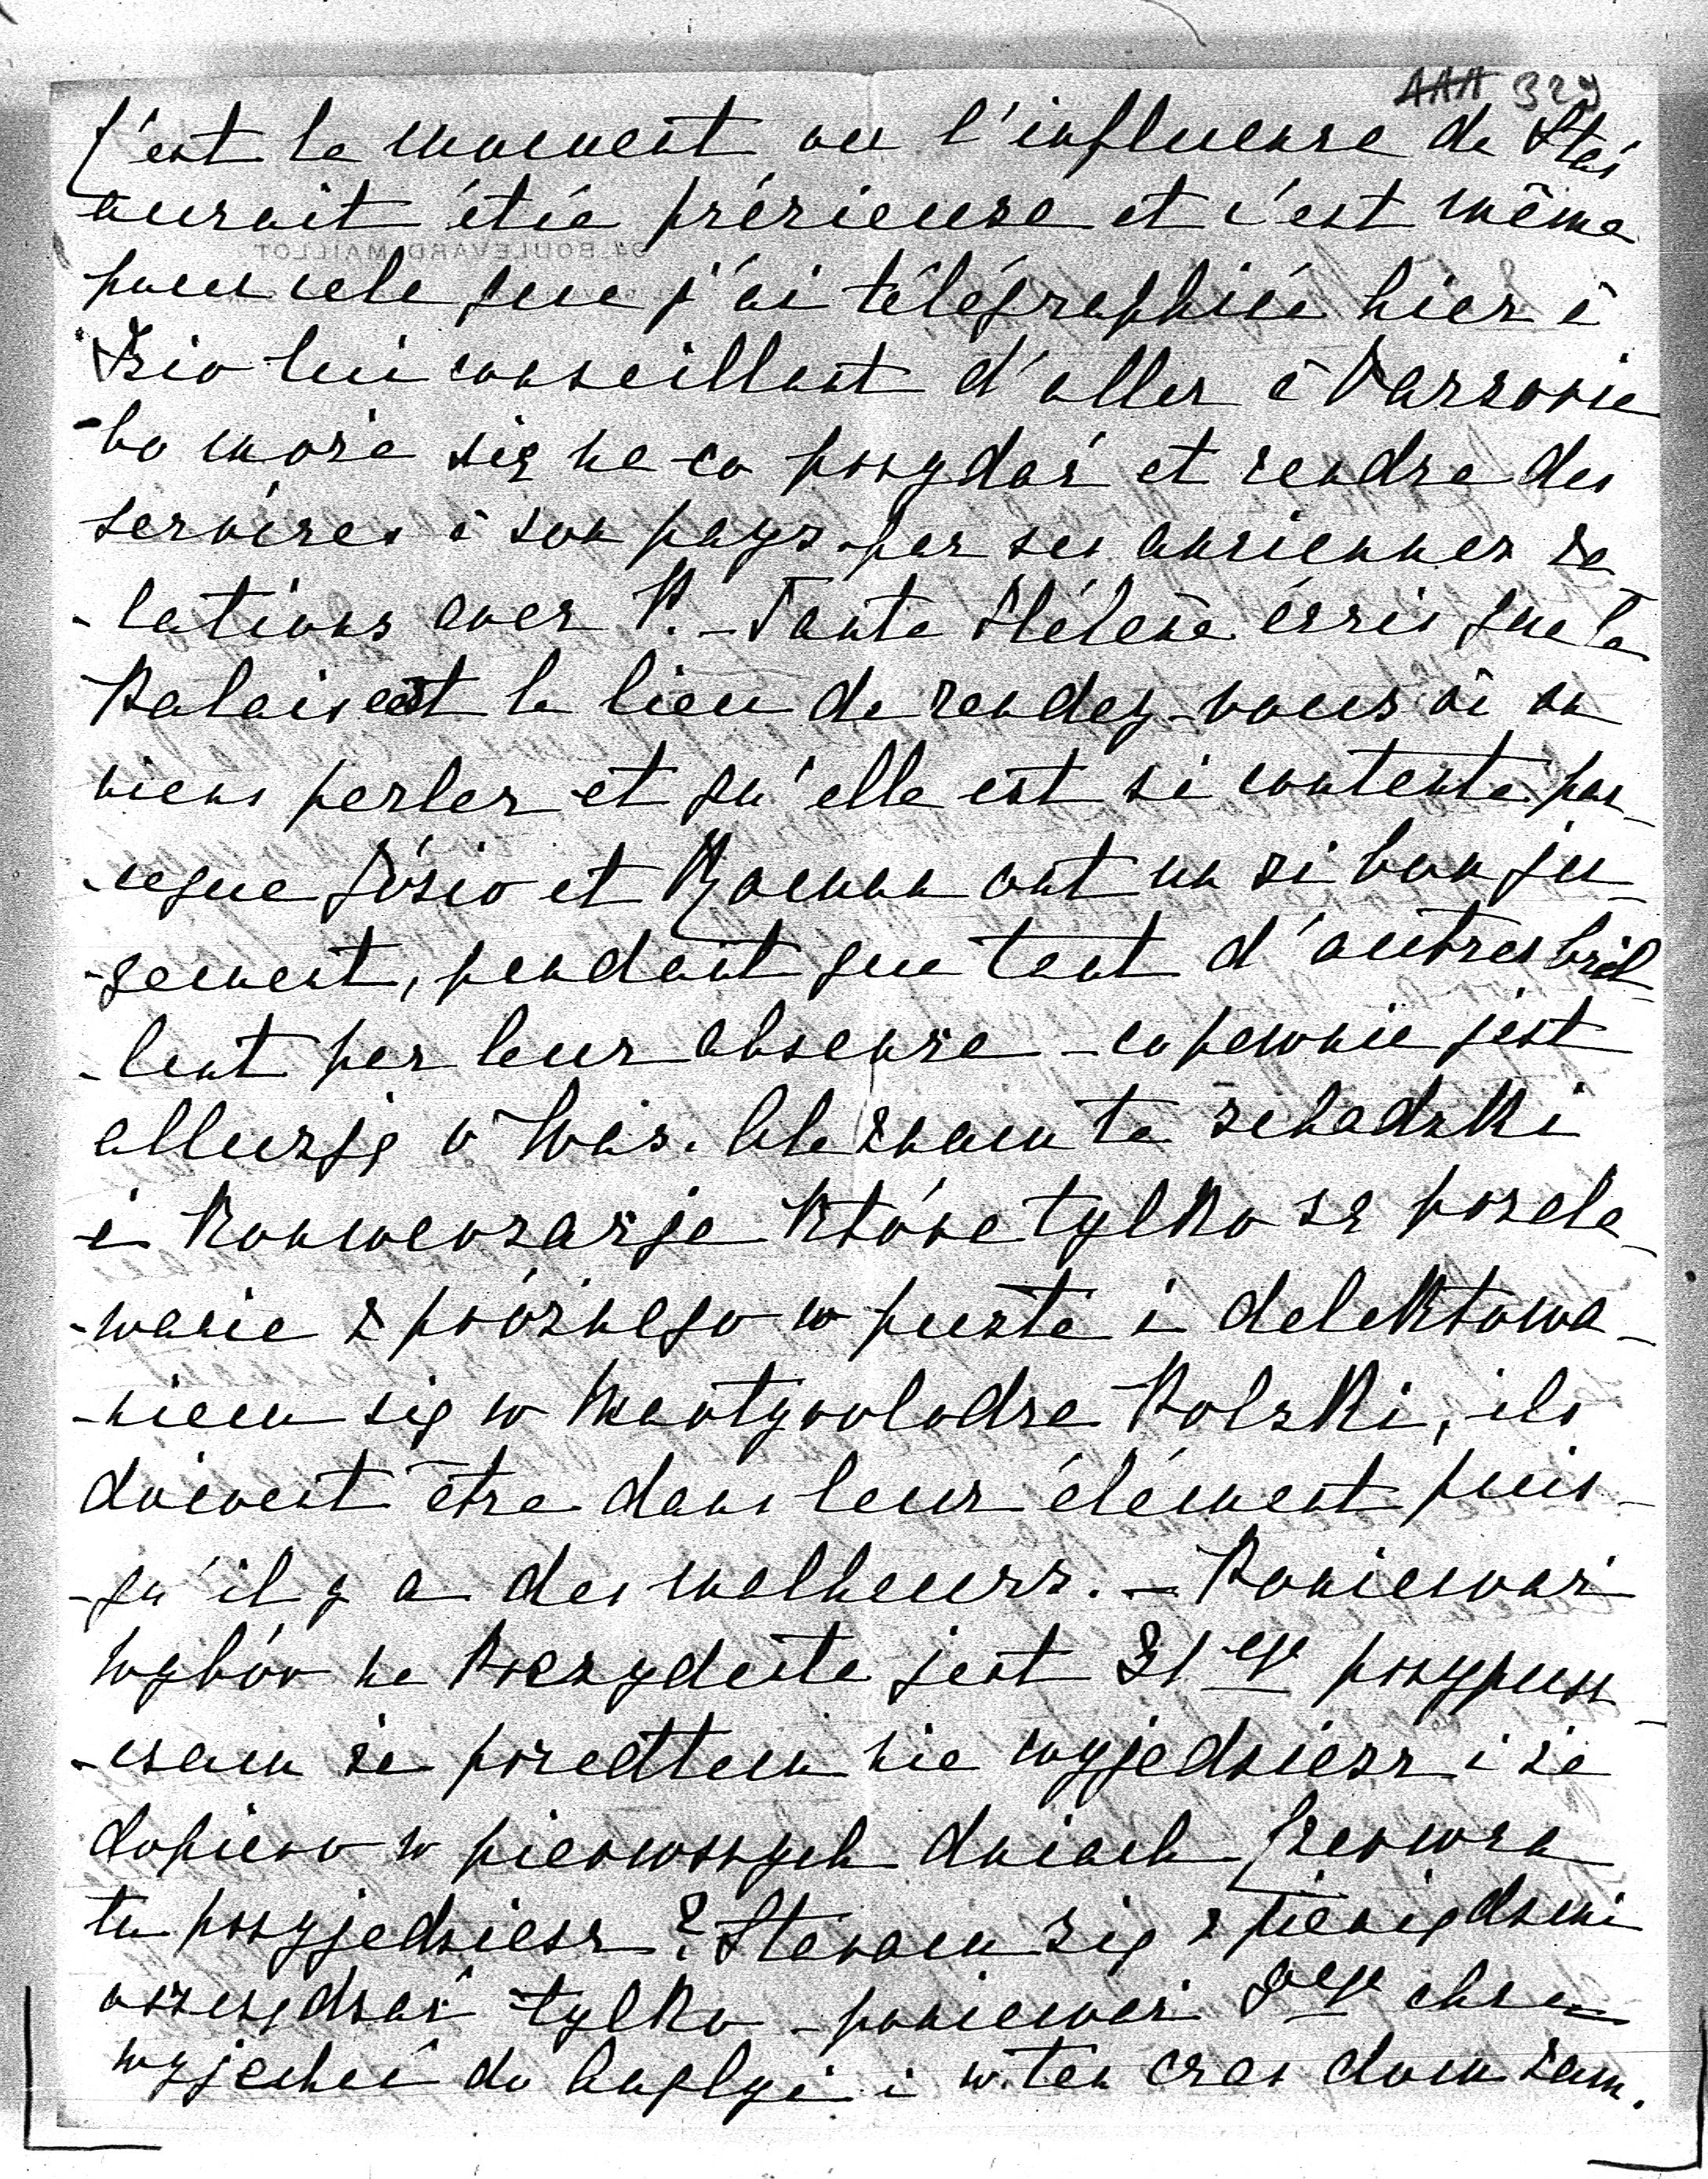 AAA 329
C'est le moment ou l'influence de Staś
aurait étée précieuse et c'est même
94 BOULEVARD MAILLOT
pour cela que j'ai télégraphiée hier à
Józio lui conseillant d'aller à Varsovie
-bo może się na co przydać et rendre des
services à son pays par ses anciennes re
-lations avec P. - Tante Hélène écris que le
Palais est le lieu de rendez-vous où on
viens parler et qu'elle est si contente par
-ceque Józio et Maman ont un si bon ju
-gement, pendant que tant d'autres bril
-lent par leur absence - co pewnie jest
alluzją o Was. Ale znam te schadzki
i konwersacje które tylko są przele
-wanie z próżnego w puste i delektowa
-niem się w Martyrolodze Polski, ils
doivent être dans leur élément puis-
-qu'il y a des malheurs. - Ponieważ
wybór na Prezydenta jest 31go przypusz
-czam że przedtem nie wyjedziesz i że
dopiero w pierwszych dniach Czerwca
tu przyjedziesz? Staram się z pieniędzmi
oszczędzać tylko - ponieważ 8go chcą
wyjechać do Anglyi i w ten czas dom zam.